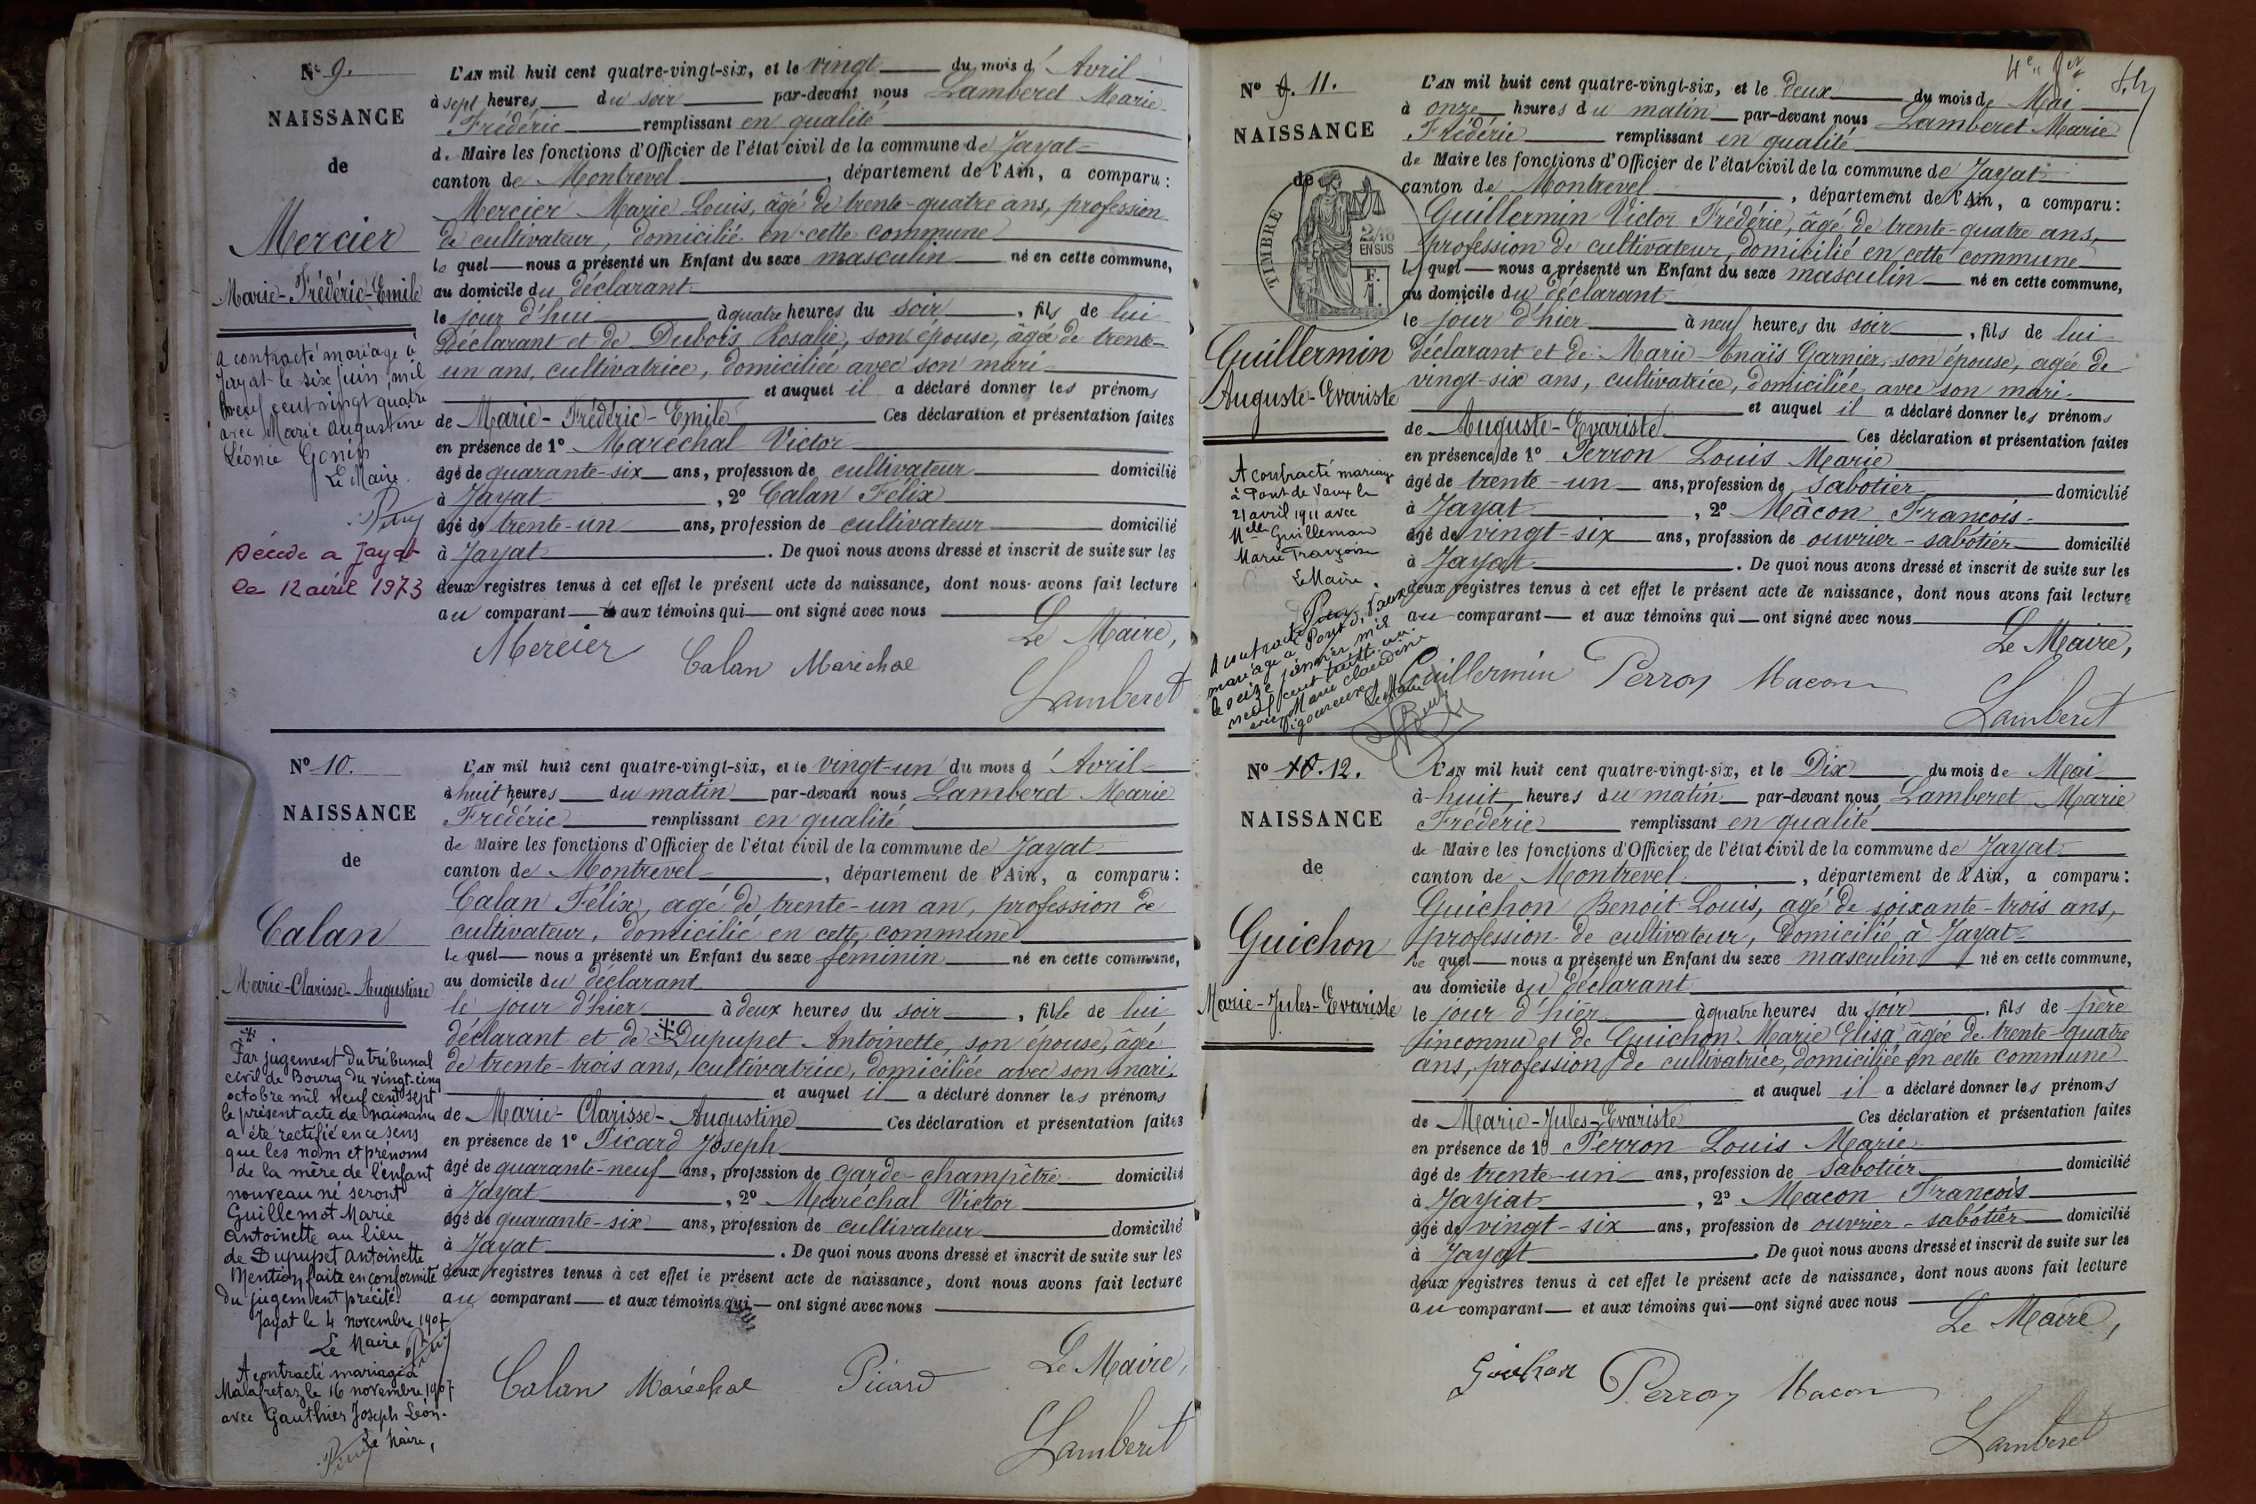 N° 9.
NAISSANCE
de
Mercier
Marie-Frédéric-Emile
A contracté mariage à
Jayat le six juin mil
neuf cent vingt quatre
avec Marie Augustine
Léonie
Le Maire.
Décédé a Jayat
le 12 avril 1973
L'AN mil huit cent quatre-vingt-six, et le vingt du mois d'Avril
à sept heures du soir par-devant nous Lamberet Marie
Frédéric remplissant en qualité
de Maire les fonctions d'Officier de l'état civil de la commune de Jayat
canton de Montrevel, département de l'Ain, a comparu:
Mercier Marie Louis, âgé de trente-quatre ans, profession
de cultivateur, domicilié en cette commune
le quel nous a présenté un Enfant du sexe masculin né en cette commune,
au domicile du déclarant
le jour d'hui à quatre heures du soir, fils de lui
déclarant et de Dubois Rosalie, son épouse, âgée de trente-
un ans, cultivatrice, domiciliée avec son mari
et auquel il a déclaré donner les prénoms
de Marie-Frédéric-Emile Ces déclaration et présentation faites
en présence de 1° Maréchal Victor
âgé de quarante-six ans, profession de cultivateur domicilié
à Jayat, 2° Calan Félix
âgé de trente-un ans, profession de cultivateur domicilié
à Jayat. De quoi nous avons dressé et inscrit de suite sur les
deux registres tenus à cet effet le présent acte de naissance, dont nous avons fait lecture
au comparant et aux témoins qui ont signé avec nous
Le Maire,
Mercier Calan Maréchal
Lamberet
N° 10.
NAISSANCE
de
Calan
Marie-Clarisse-Augustine
Par jugement du tribunal
civil de Bourg du vingt-cinq
octobre mil neuf cent sept
le présent acte de naissance
a été rectifié en ce sens
que les nom et prénoms
de la mère de l'enfant
nouveau né seront
Guillemot Marie
Antoinette au lieu
de Dupupet Antoinette
Mention faite en conformité
du jugement précité
Jayat le 4 novembre 1907
Le Maire
A contracté mariage à
Malafretaz le 16 novembre 1907
avec Gauthier Joseph Léon.
Le Maire,
L'AN mil huit cent quatre-vingt-six, et le vingt-un du mois d'Avril
à huit heures du matin par-devant nous Lamberet Marie
Frédéric remplissant en qualité
de Maire les fonctions d'Officier de l'état civil de la commune de Jayat
canton de Montrevel, département de l'Ain, a comparu:
Calan Félix, agé de trente-un an, profession de
cultivateur, domicilié en cette commune
le quel nous a présenté un Enfant du sexe féminin né en cette commune,
au domicile du déclarant
le jour d'hier à deux heures du soir, fille de lui
déclarant et de Dupupet Antoinette, son épouse, âgée
de trente-trois ans, cultivatrice, domiciliée avec son mari.
et auquel il a déclaré donner les prénoms
de Marie-Clarisse-Augustine Ces déclaration et présentation faites
en présence de 1° Picard Joseph
âgé de quarante-neuf ans, profession de garde-champêtre domicilié
à Jayat, 2° Maréchal Victor
âgé de quarante-six ans, profession de cultivateur domicilié
à Jayat. De quoi nous avons dressé et inscrit de suite sur les
deux registres tenus à cet effet le présent acte de naissance, dont nous avons fait lecture
au comparant et aux témoins qui ont signé avec nous
Le Maire,
Calan Maréchal Picard
Lamberet
N° 9. 11.
NAISSANCE
de
TIMBRE
2/10
EN SUS
F.
1.
Guillermin
Auguste-Evariste
A contracté mariage
à Pont de Vaux le
21 avril 1911 avec
Melle Guilleman
Marie Françoise
Le Maire.
A contracté
mariage à Pont d. Vaux
le seize janvier mil
neuf cent trente un
avec Marie Claudine
Vigoureux
Le Maire
L'AN mil huit cent quatre-vingt-six, et le deux du mois de Mai
à onze heures du matin par-devant nous Lamberet Marie
Frédéric remplissant en qualité
de Maire les fonctions d'Officier de l'état civil de la commune de Jayat
canton de Montrevel, département de l'Ain, a comparu:
Guillermin Victor Frédéric, âgé de trente-quatre ans,
profession de cultivateur, domicilié en cette commune
le quel nous a présenté un Enfant du sexe masculin né en cette commune,
au domicile du déclarant
le jour d'hier à neuf heures du soir, fils de lui
déclarant et de Marie-Anaïs Garnier, son épouse, agée de
vingt-six ans, cultivatrice, domiciliée avec son mari.
et auquel il a déclaré donner les prénoms
de Auguste-Evariste Ces déclaration et présentation faites
en présence de 1° Perron Louis Marie
âgé de trente-un ans, profession de sabotier domicilié
à Jayat, 2° Mâcon François
âgé de vingt-six ans, profession de ouvrier-sabotier domicilié
à Jayat. De quoi nous avons dressé et inscrit de suite sur les
deux registres tenus à cet effet le présent acte de naissance, dont nous avons fait lecture
au comparant et aux témoins qui ont signé avec nous
Le Maire,
Guillermin Perron Macon
Lamberet
N° 10. 12.
NAISSANCE
de
Guichon
Marie-Jules-Evariste
L'AN mil huit cent quatre-vingt-six, et le Dix du mois de Mai
à huit heures du matin par-devant nous Lamberet Marie
Frédéric remplissant en qualité
de Maire les fonctions d'Officier de l'état civil de la commune de Jayat
canton de Montrevel, département de l'Ain, a comparu:
Guichon Benoit Louis, agé de soixante-trois ans,
profession de cultivateur, domicilié à Jayat
le quel nous a présenté un Enfant du sexe masculin né en cette commune,
au domicile du déclarant
le jour d'hier à quatre heures du soir, fils de père
inconnu et de Guichon Marie Elisa âgée de trente-quatre
ans, profession de cultivatrice, domiciliée en cette commune
et auquel il a déclaré donner les prénoms
de Marie-Jules-Evariste Ces déclaration et présentation faites
en présence de 1° Perron Louis Marie
âgé de trente-un ans, profession de sabotier domicilié
à Jayat, 2° Macon François
âgé de vingt-six ans, profession de ouvrier-sabotier domicilié
à Jayat. De quoi nous avons dressé et inscrit de suite sur les
deux registres tenus à cet effet le présent acte de naissance, dont nous avons fait lecture
au comparant et aux témoins qui ont signé avec nous
Le Maire,
Guichon Perron Macon
Lamberet